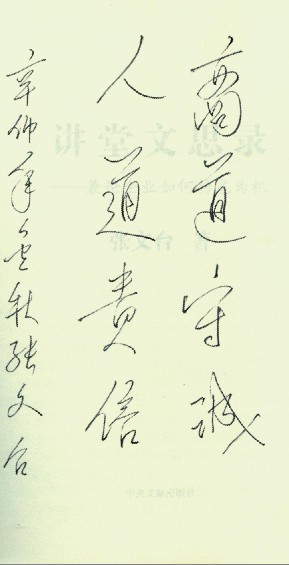 商道守诚
人道贵信
辛卯年金秋张文台
讲堂文思录
张文台 著
中央文献出版社